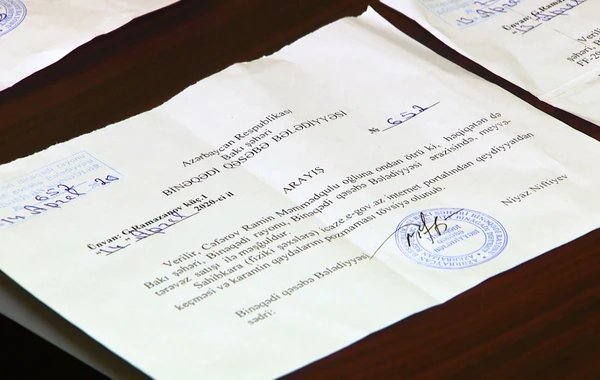 Azərbaycan Respublikası
Bakı şəhəri
BİNƏQƏDİ QƏSƏBƏ BƏLƏDİYYƏSİ
№ 652
652
14 Aprel 20
Ünvan: G.Ramazanov küç.1
"14" Aprel 2020-ci il
ARAYIŞ
Verilir, Cəfərov Ramin Məmmədqulu oğluna ondan ötrü ki, həqiqətən də
Bakı şəhəri, Binəqədi rayonu, Binəqədi qəsəbə Bələdiyyəsi ərazisində, meyvə-
tərəvəz satışı ilə məşğuldur.
Sahibkara (fiziki şəxslərə) icaze.e-gov.az internet portalından qeydiyyatdan
keçməsi və karantin qaydalarını pozmaması tövsiyə olunub.
Binəqədi qəsəbə Bələdiyyəsi
sədri:
Niyaz Niftiyev
Ünvan: G.Ramazanov
Verilir,
şəhəri, B